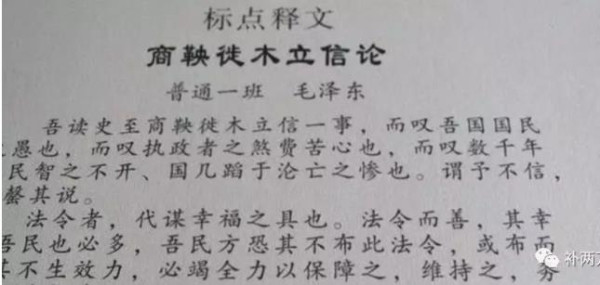 标点释文
商鞅徙木立信论
普通一班 毛泽东
吾读史至商鞅徙木立信一事，而叹吾国国民
愚也，而叹执政者之煞费苦心也，而叹数千年
民智之不开、国几蹈于沦亡之惨也。谓予不信，
罄其说。
法令者，代谋幸福之具也。法令而善，其幸
吾民也必多，吾民方恐其不布此法令，或布而
其不生效力，必竭全力以保障之，维持之，务
补两